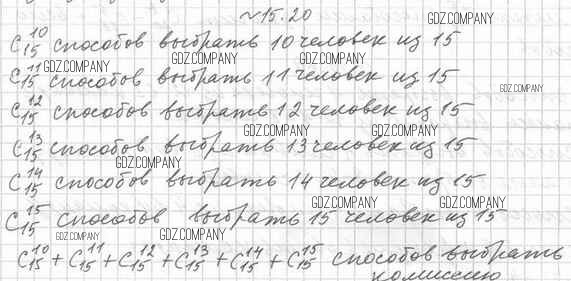 ~15.20
C₁₅¹⁰ способов выбрать 10 человек из 15
C₁₅¹¹ способов выбрать 11 человек из 15
C₁₅¹² способов выбрать 12 человек из 15
C₁₅¹³ способов выбрать 13 человек из 15
C₁₅¹⁴ способов выбрать 14 человек из 15
C₁₅¹⁵ способов выбрать 15 человек из 15
C₁₅¹⁰ + C₁₅¹¹ + C₁₅¹² + C₁₅¹³ + C₁₅¹⁴ + C₁₅¹⁵ способов выбрать
комиссию
GDZ.COMPANY
GDZ.COMPANY
GDZ.COMPANY
GDZ.COMPANY
GDZ.COMPANY
GDZ.COMPANY
GDZ.COMPANY
GDZ.COMPANY
GDZ.COMPANY
GDZ.COMPANY
GDZ.COMPANY
GDZ.COMPANY